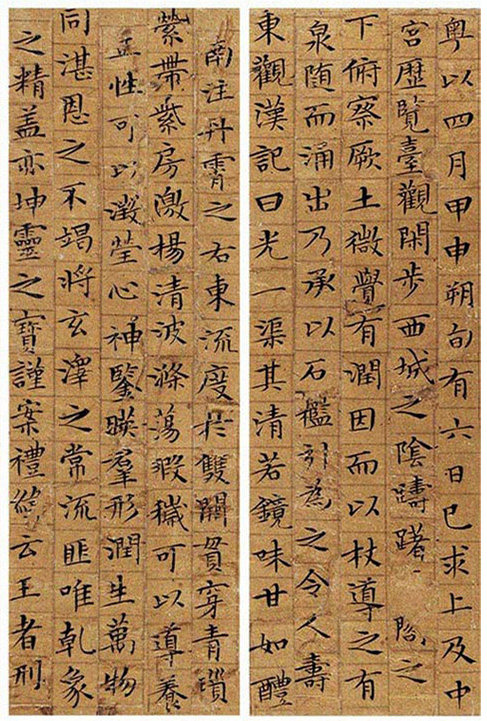 粤以四月甲申朔旬有六日巳求上及中
宮歴覽臺觀閑步西城之陰躊躇之
下俯察厥土微覺有潤因而以杖導之有
泉随而涌出乃承以石檻引為之令人壽
東觀漢記曰光一渠其清若鏡味甘如醴
南注丹霄之右東流度扵雙闕貫穿青瑣
縈帶紫房激楊清波滌蕩瑕穢可以導養
正性可以澂瑩心神鑒暎羣形潤生萬物
同湛恩之不竭将玄澤之常流匪唯乾象
之精盖亦坤靈之寶謹案禮緯云王者刑